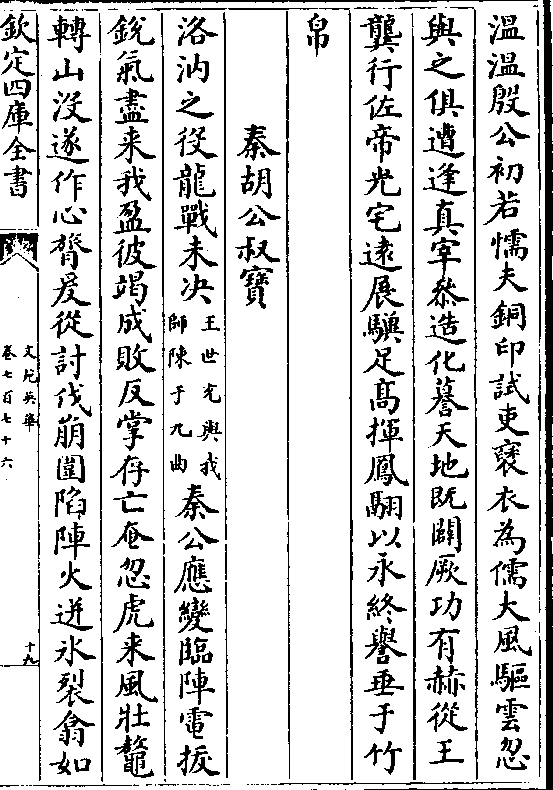 温温殷公初若懦夫銅印試吏裦衣為儒大風驅雲忽
與之俱遭逢真宰叅造化謩天地既闢厥功有赫從王
龔行佐帝光宅逺展驥足髙揮鳳翮以永終譽垂于竹
帛
秦胡公叔寳
洛汭之役龍戰未决王世充與我師陳于九曲秦公應變臨陣電扳
鋭氣盡来我盈彼竭成敗反掌存亡奄忽虎来風壯鼇
轉山没遂作心膂爰從討伐崩圍陷陣火迸氷裂翕如
欽定四庫全書
文苑英華
卷七百七十六
十九